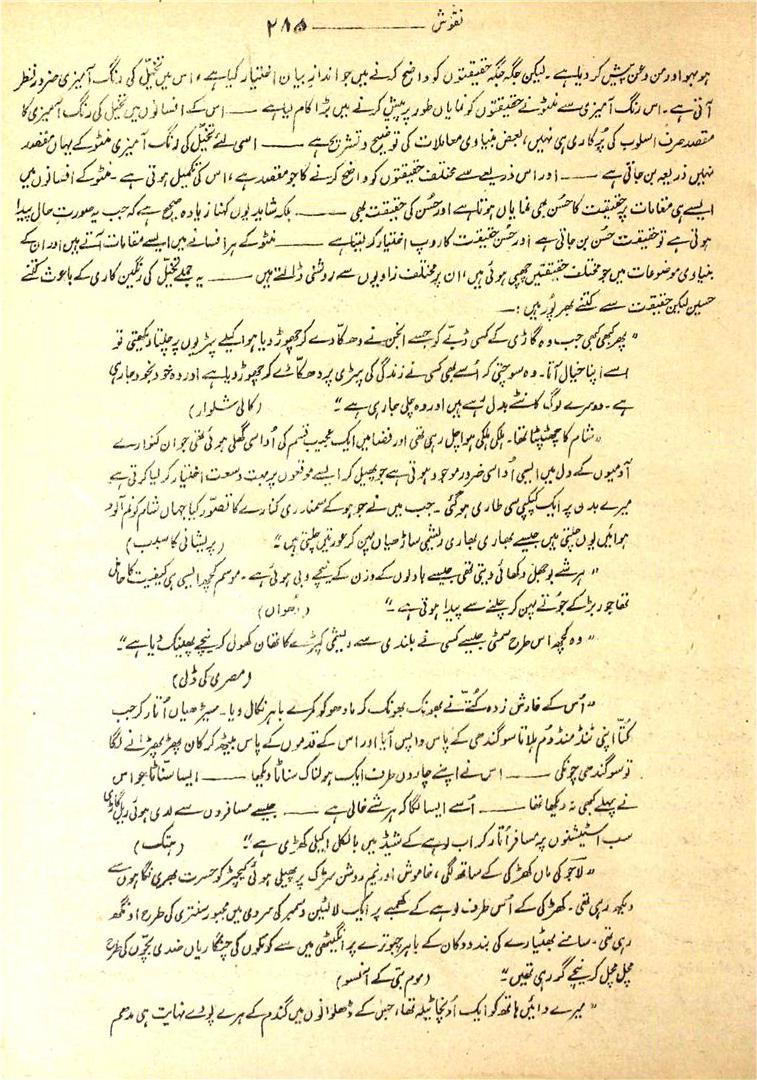 نقوش ——— ۲۸۵
ہو بہو اور من و عن پیش کر دیا ہے۔ لیکن جگہ جگہ حقیقتوں کو واضح کرنے میں جو اندازِ بیان اختیار کیا ہے، اس میں تخیّل کی رنگ آمیزی ضرور نظر
آتی ہے۔ اس رنگ آمیزی سے منٹو نے حقیقتوں کو نمایاں طور پر پیش کرنے میں بڑا کام لیا ہے —— اس کے افسانوں میں تخیل کی رنگ آمیزی کا
مقصد صرف اسلوب کی پُرکاری ہی نہیں، بعض بنیادی معاملات کی توضیح و تشریح ہے —— اسی لئے تخیّل کی رنگ آمیزی منٹو کے یہاں مقصد
نہیں ذریعہ بن جاتی ہے —— اور اس ذریعے سے مختلف حقیقتوں کو واضح کرنے کا جو مقصد ہے، اس کی تکمیل ہوتی ہے۔ منٹو کے افسانوں میں
ایسے ہی مقامات پر حقیقت کا حسن بھی نمایاں ہوتا ہے اور حُسن کی حقیقت بھی —— بلکہ شاید یوں کہنا زیادہ صحیح ہے کہ جب یہ صورتِ حال پیدا
ہوتی ہے تو حقیقت حسن بن جاتی ہے اور حسن حقیقت کا روپ اختیار کر لیتا ہے —— منٹو کے ہر افسانے میں ایسے مقامات آتے ہیں اور ان کے
بنیادی موضوعات میں جو مختلف حقیقتیں چھپی ہوئی ہیں، ان پر مختلف زاویوں سے روشنی ڈالتے ہیں —— یہ جملے تخیّل کی رنگین کاری کے باعث کتنے
حسین لیکن حقیقت سے کتنے بھرپور ہیں :—
"پھر کبھی کبھی جب وہ گاڑی کے کسی ڈبّے کو جسے انجن نے دھکا دے کر چھوڑ دیا ہو اکیلے پٹریوں پر چلتا دیکھتی تو
اسے اپنا خیال آتا۔ وہ سوچتی کہ اُسے بھی کسی نے زندگی کی پٹری پر دھکا دے کر چھوڑ دیا ہے اور وہ خود بخود جا رہی
ہے۔ دوسرے لوگ کانٹے بدل رہے ہیں اور وہ چلی جا رہی ہے۔" (کالی شلوار)
"شام کا جھٹپٹا تھا۔ ہلکی ہلکی ہوا چل رہی تھی اور فضا میں ایک عجیب قسم کی اُداسی گھلی ہوئی تھی جوان کنوارے
آدمیوں کے دل میں ایسی اُداسی ضرور موجود ہوتی ہے جو پھیل کر ایسے موقعوں پر بہت وسعت اختیار کر لیا کرتی ہے
میرے بدن پر ایک کپکپی سی طاری ہو گئی۔ جب میں نے جوہو کے سمندری کنارے کا تصوّر کیا جہاں شام کو نم آلود
ہوائیں یوں چلتی ہیں جیسے بھاری بھاری ریشمی ساڑھیاں پہن کر عورتیں چلتی ہیں۔" (پریشانی کا سبب)
"ہر شے بوجھل دکھائی دیتی تھی جیسے بادلوں کے وزن کے نیچے دبی ہوئی ہے۔ موسم کچھ ایسی ہی کیفیت کا حامل
تھا جو ربڑ کے جوتے پہن کر چلنے سے پیدا ہوتی ہے۔" (دھواں)
"وہ کچھ اس طرح سمٹی جیسے کسی نے بلندی سے ریشمی کپڑے کا تھان کھول کر نیچے پھینک دیا ہے۔"
(مصری کی ڈلی)
"اُس کے خارش زدہ کتے نے بھونک بھونک کر مادھو کو کمرے باہر نکال دیا۔ سیڑھیاں اُتار کر جب
کتّا اپنی ٹنڈ منڈ دُم ہلاتا سوگندھی کے پاس واپس آیا اور اس کے قدموں کے پاس بیٹھ کر کان پھڑپھڑانے لگا
تو سوگندھی چونکی —— اس نے اپنے چاروں طرف ایک ہولناک سناٹا دیکھا —— ایسا سنّاٹا جو اس
نے پہلے کبھی نہ دیکھا تھا —— اُسے ایسا لگا کہ ہر شے خالی ہے —— جیسے مسافروں سے لدی ہوئی ریل گاڑی
سب اسٹیشنوں پر مسافر اُتار کر اب لوہے کے شیڈ میں بالکل اکیلی کھڑی ہے۔" (ہتک)
"لاجو کی ماں کھڑکی کے ساتھ لگی، خاموش اور نیم روشن سڑک پر پھیلی ہوئی کیچڑ کو حسرت بھری نگاہوں سے
دیکھ رہی تھی۔ کھڑکی کے اُس طرف لوہے کے کھمبے پر ایک لالٹین دسمبر کی سردی میں مجبور سنتری کی طرح اونگھ
رہی تھی۔ سامنے بھٹیارے کی بند دوکان کے باہر چبوترے پر انگیٹھی میں سے کوئلوں کی چنگاریاں ضدی بچّوں کی طرح
مچل مچل کر نیچے گر رہی تھیں۔" (موم بتی کے آنسو)
"میرے دائیں ہاتھ کو ایک اُونچا ٹیلہ تھا، جس کے ڈھلوانوں میں گندم کے ہرے پودے نہایت ہی مدھم